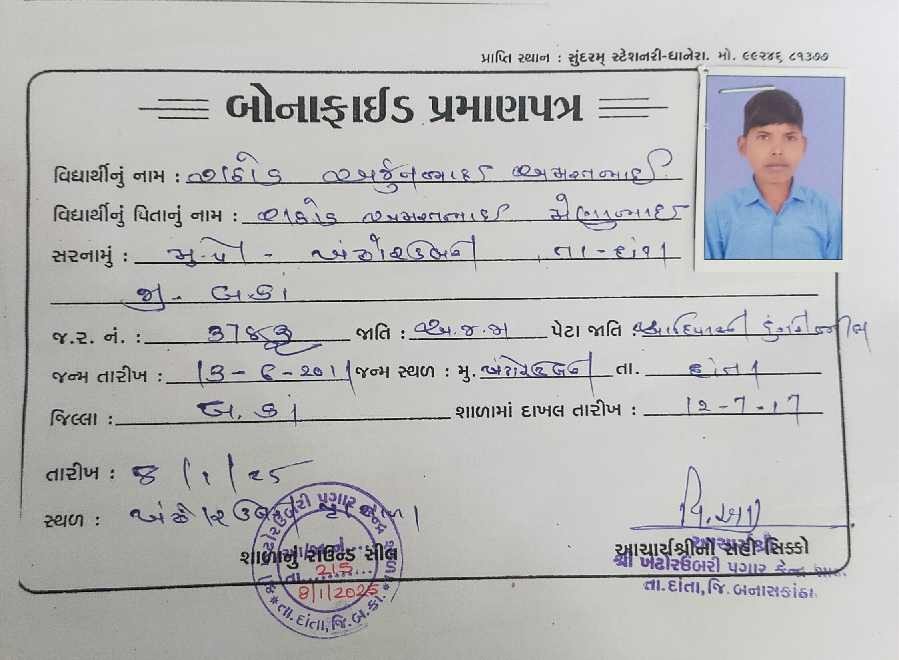 પ્રાપ્તિ સ્થાન : સુંદરમ્ સ્ટેશનરી-ધાનેરા. મો. ૯૯૨૪૬ ૮૧૩૭૭
બોનાફાઈડ પ્રમાણપત્ર
વિદ્યાર્થીનું નામ : રાઠોડ અર્જુનભાઈ અમરતભાઈ
વિદ્યાર્થીનું પિતાનું નામ : રાઠોડ અમરતભાઈ
સરનામું : મુ.પો - તા - દાંતા
જી. બ.કાં
જ.ર. નં. : 3783 જાતિ : અ.જ.જા પેટા જાતિ : આદિવાસી ડુંગરી
જન્મ તારીખ : 13 - 6 - 2011 જન્મ સ્થળ : મુ. તા. દાંતા
જિલ્લા : બ. કાં શાળામાં દાખલ તારીખ : 12 - 7 - 17
તારીખ : 8 / 1 / 25
સ્થળ :
શાળાનું રાઉન્ડ સીલ
તા. 215
8/1/2025
તા. દાંતા, જિ. બ.કાં.
આચાર્યશ્રીની સહી સિક્કો
આચાર્યશ્રી
શ્રી ખંઢોરઉંબરી પગાર કેન્દ્ર
તા. દાંતા, જિ. બનાસકાંઠા